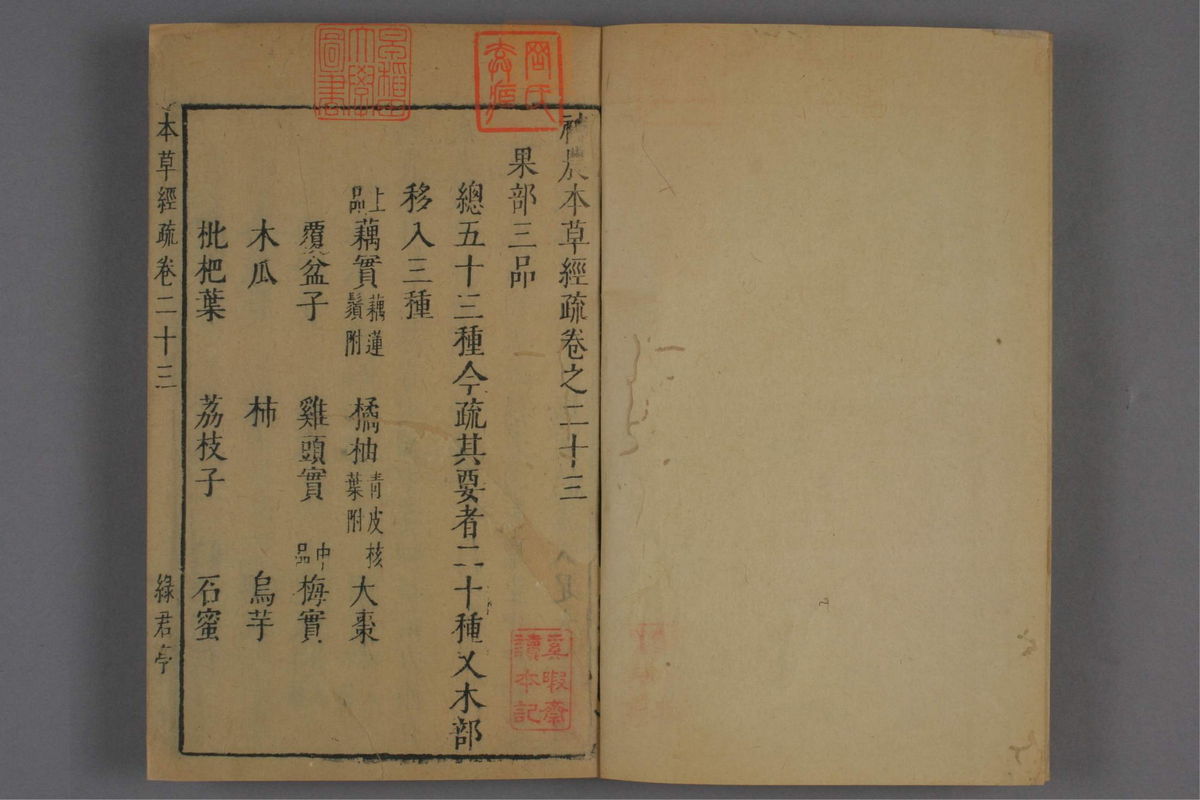 神農本草經疏卷之二十三
果部三品
總五十三種今疏其要者二十種又木部
移入三種
上品 藕實 藕蓮鬚附 橘柚 青皮核葉附 大棗
覆盆子 雞頭實 中品 梅實
木瓜 柿 烏芋
枇杷葉 荔枝子 石蜜
本草經疏 卷二十三 綠君亭
早稻田大學圖書
讀本記